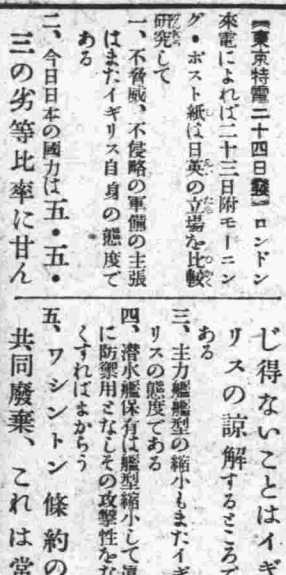 【東京特電二十四日發】ロンドン
來電によれば二十三日附モーニン
グ・ポスト紙は日英の立場を比較
研究して
一、不脅威、不侵略の軍備の主張
はまたイギリス自身の態度で
ある
二、今日日本の國力は五・五・
三の劣等比率に甘ん
じ得ないことはイギ
リスの諒解するところで
ある
三、主力艦艦型の縮小もまたイギ
リスの態度である
四、潜水艦保有は艦型縮小して
に防禦用となしその攻撃性をな
くすればよからう
五、ワシントン條約の
共同廢棄、これは常